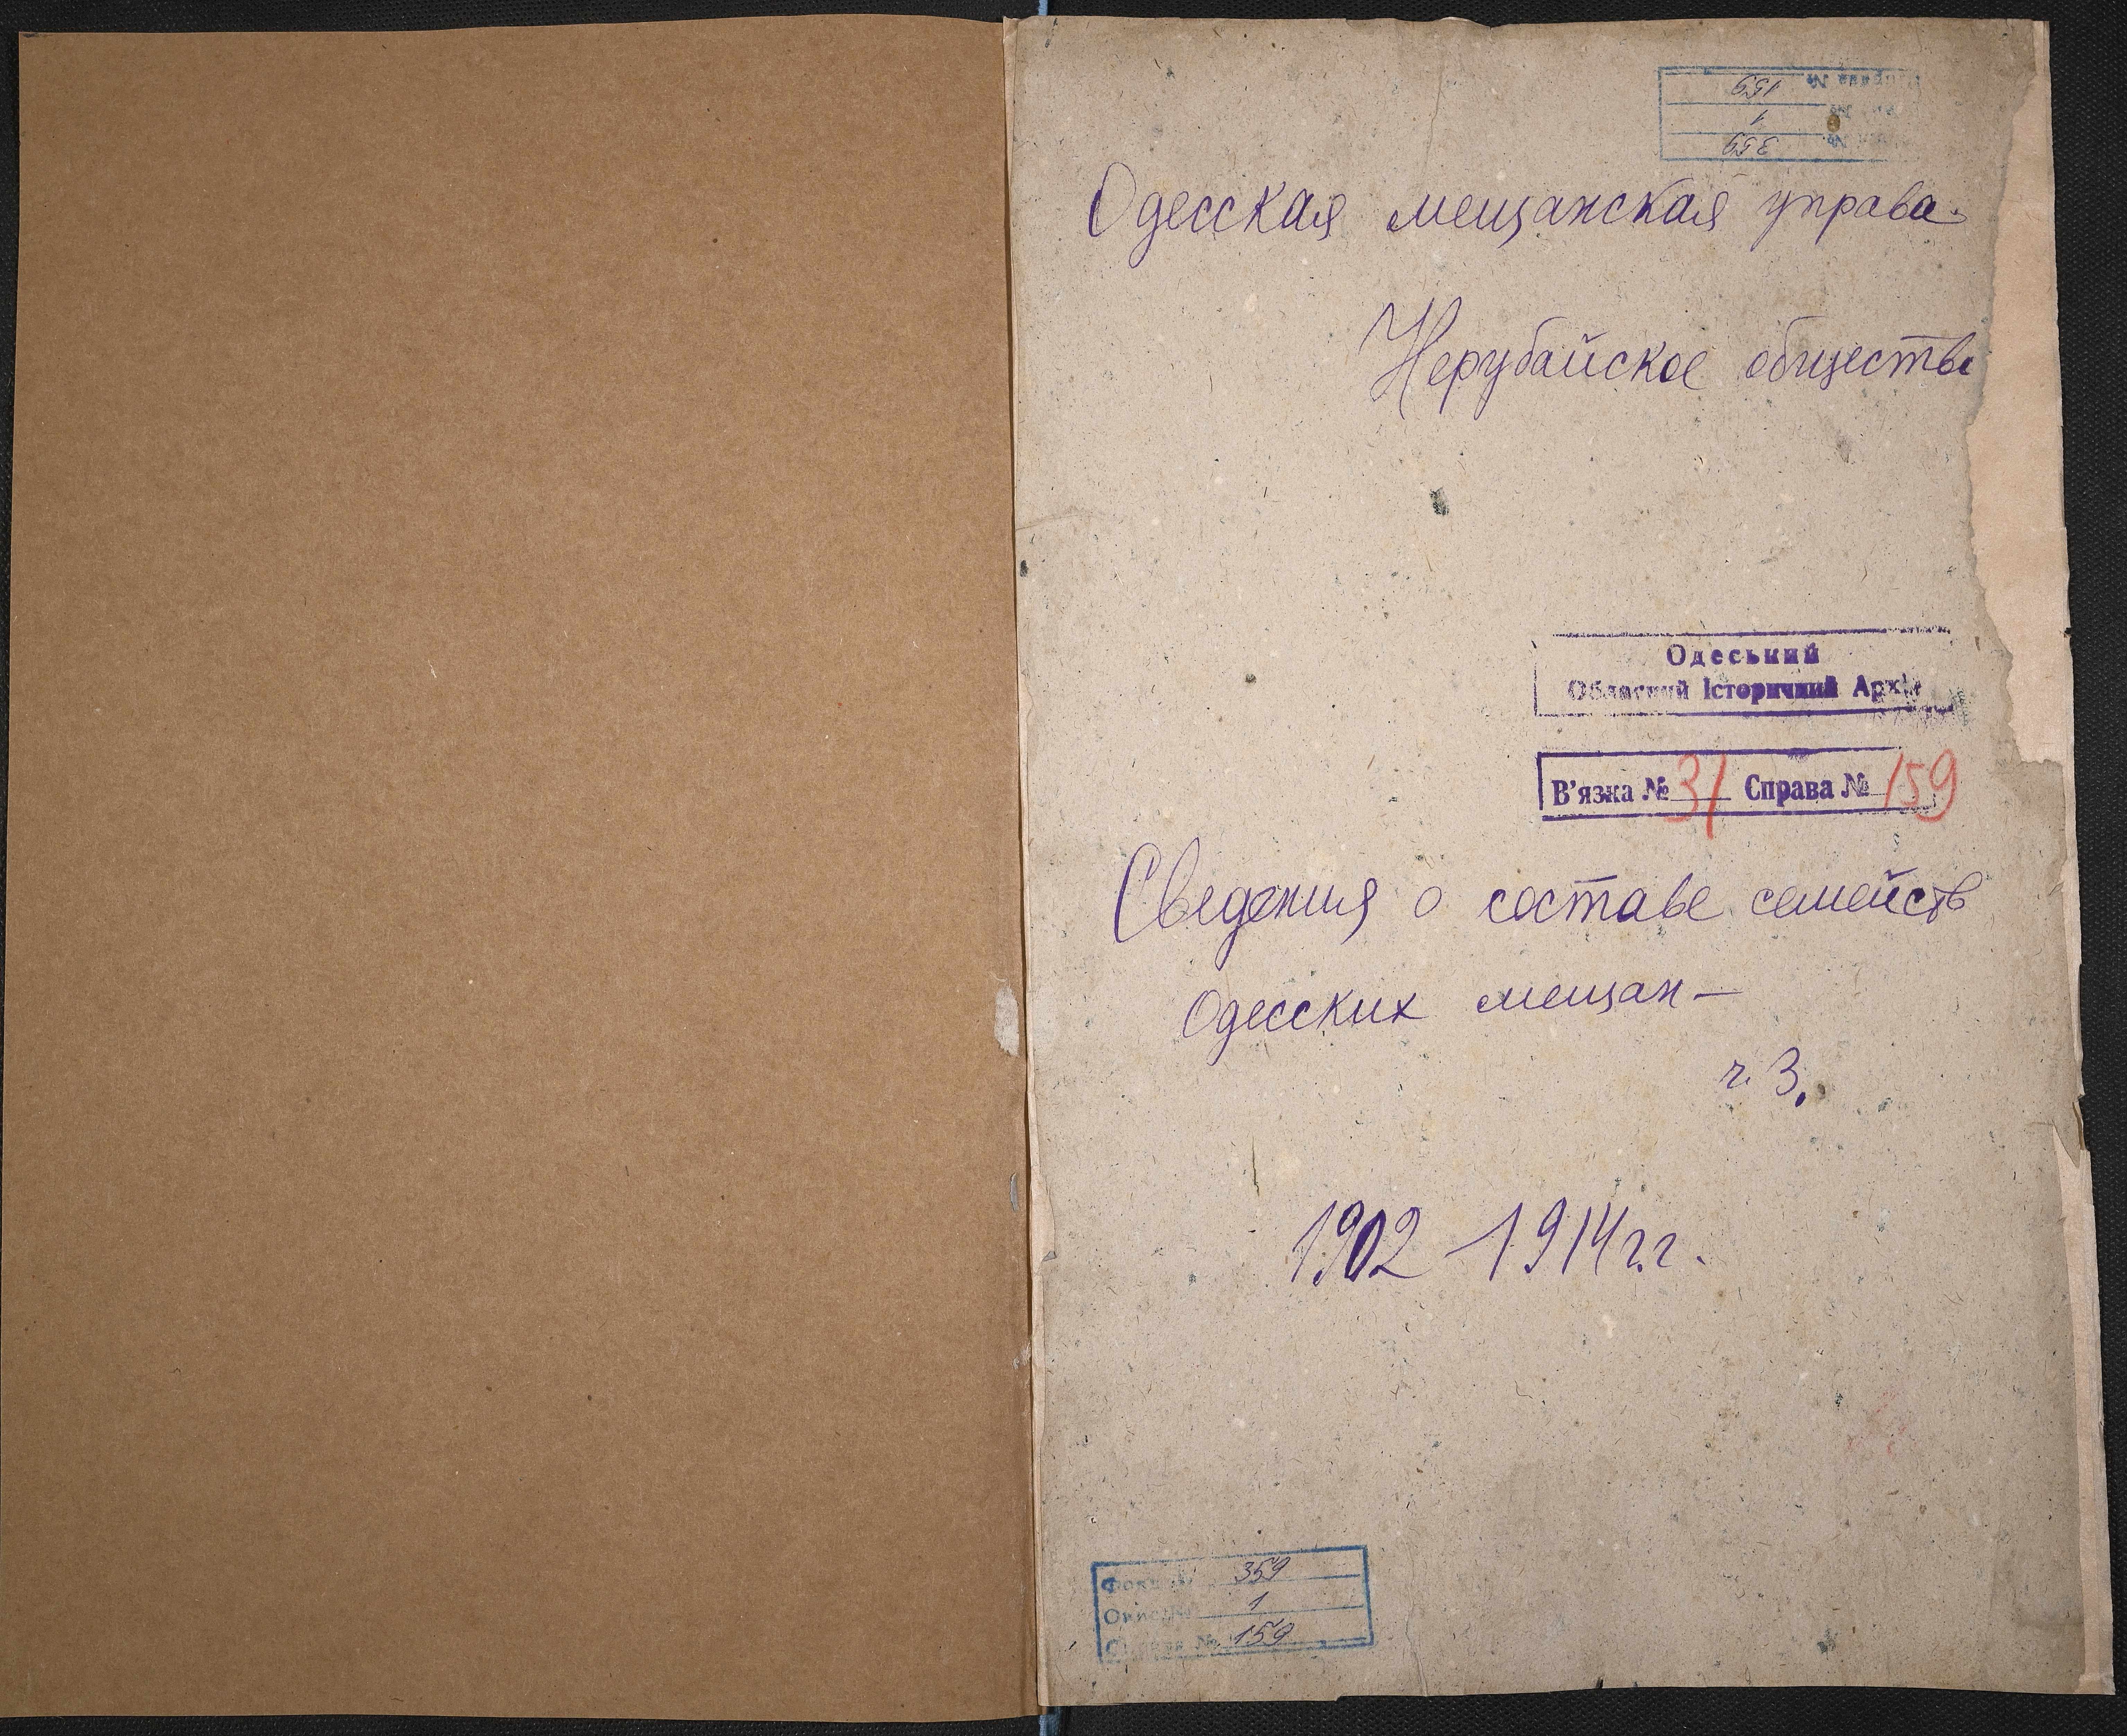 Справа № 159
№ 1
№ 359
Одесская мещанская управа.
Нерубайское общество
Одеський
Обласний Історичний Архів
В'язка № 31 Справа № 159
Сведения о составе семейств
Одесских мещан —
ч. 3.
1902 - 1914 г.г.
Фонд № 359
Опис № 1
Справа № 159